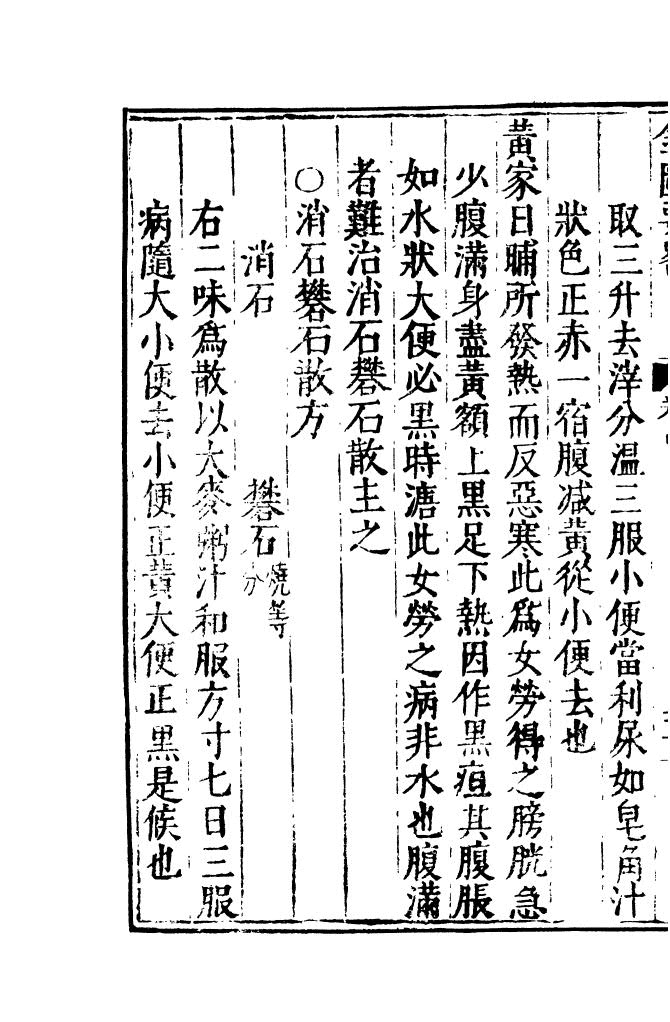 取三升去滓分溫三服小便當利尿如皂角汁
狀色正赤一宿腹减黄從小便去也
黄家日晡所發熱而反惡寒此爲女勞得之膀胱急
少腹滿身盡黄額上黑足下熱因作黑疸其腹脹
如水狀大便必黑時溏此女勞之病非水也腹滿
者難治消石礬石散主之
○消石礬石散方
消石　礬石燒等分
右二味爲散以大麥粥汁和服方寸七日三服
病隨大小便去小便正黄大便正黑是候也